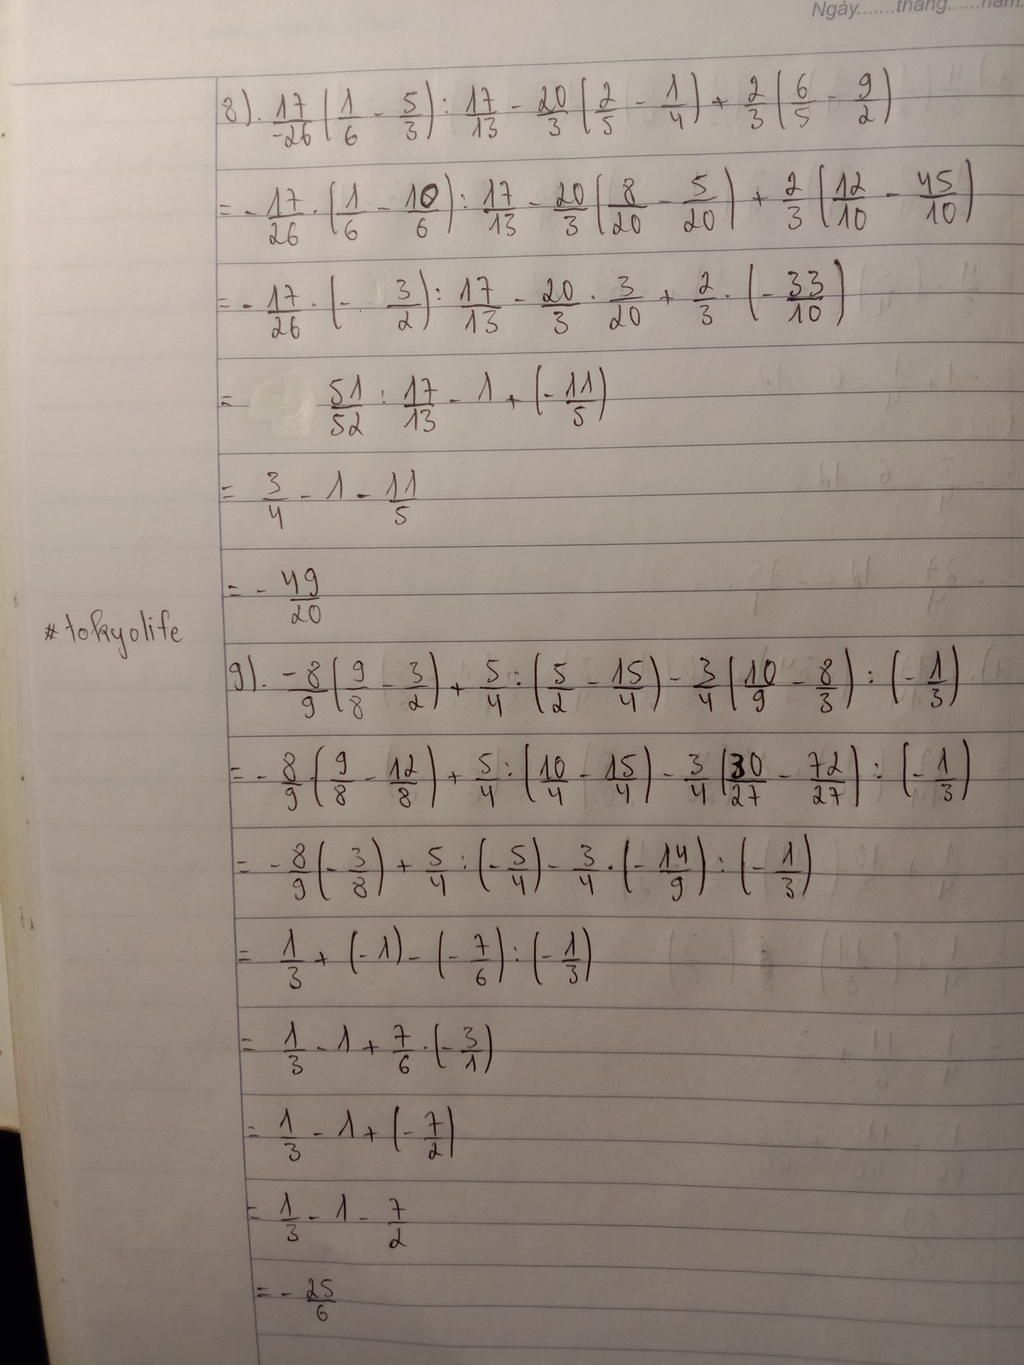 Ngày.......tháng......năm
8). 17/-26 (1/6 - 5/3) : 17/13 - 20/3 (2/5 - 1/4) + 2/3 (6/5 - 9/2)
= - 17/26 . (1/6 - 10/6) : 17/13 - 20/3 (8/20 - 5/20) + 2/3 (12/10 - 45/10)
= - 17/26 . (- 3/2) : 17/13 - 20/3 . 3/20 + 2/3 . (- 33/10)
= 51/52 : 17/13 - 1 + (- 11/5)
= 3/4 - 1 - 11/5
= - 49/20
#tokyolife
9). -8/9 (9/8 - 3/2) + 5/4 : (5/2 - 15/4) - 3/4 (10/9 - 8/3) : (- 1/3)
= - 8/9 (9/8 - 12/8) + 5/4 : (10/4 - 15/4) - 3/4 (30/27 - 72/27) : (- 1/3)
= - 8/9 (- 3/8) + 5/4 : (- 5/4) - 3/4 . (- 14/9) : (- 1/3)
= 1/3 + (-1) - (- 7/6) : (- 1/3)
= 1/3 - 1 + 7/6 . (- 3/1)
= 1/3 - 1 + (- 7/2)
= 1/3 - 1 - 7/2
= - 25/6